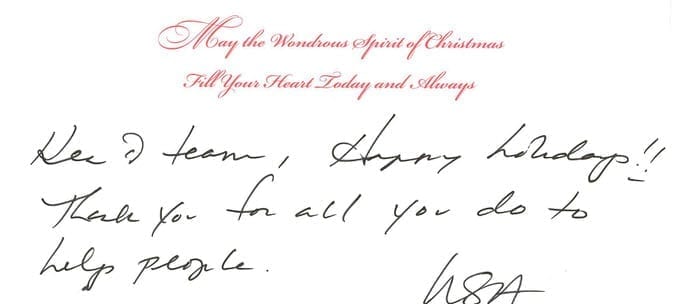 May the Wondrous Spirit of Christmas
Fill Your Heart Today and Always
team, Happy holidays!!
Thank you for all you do to
help people.